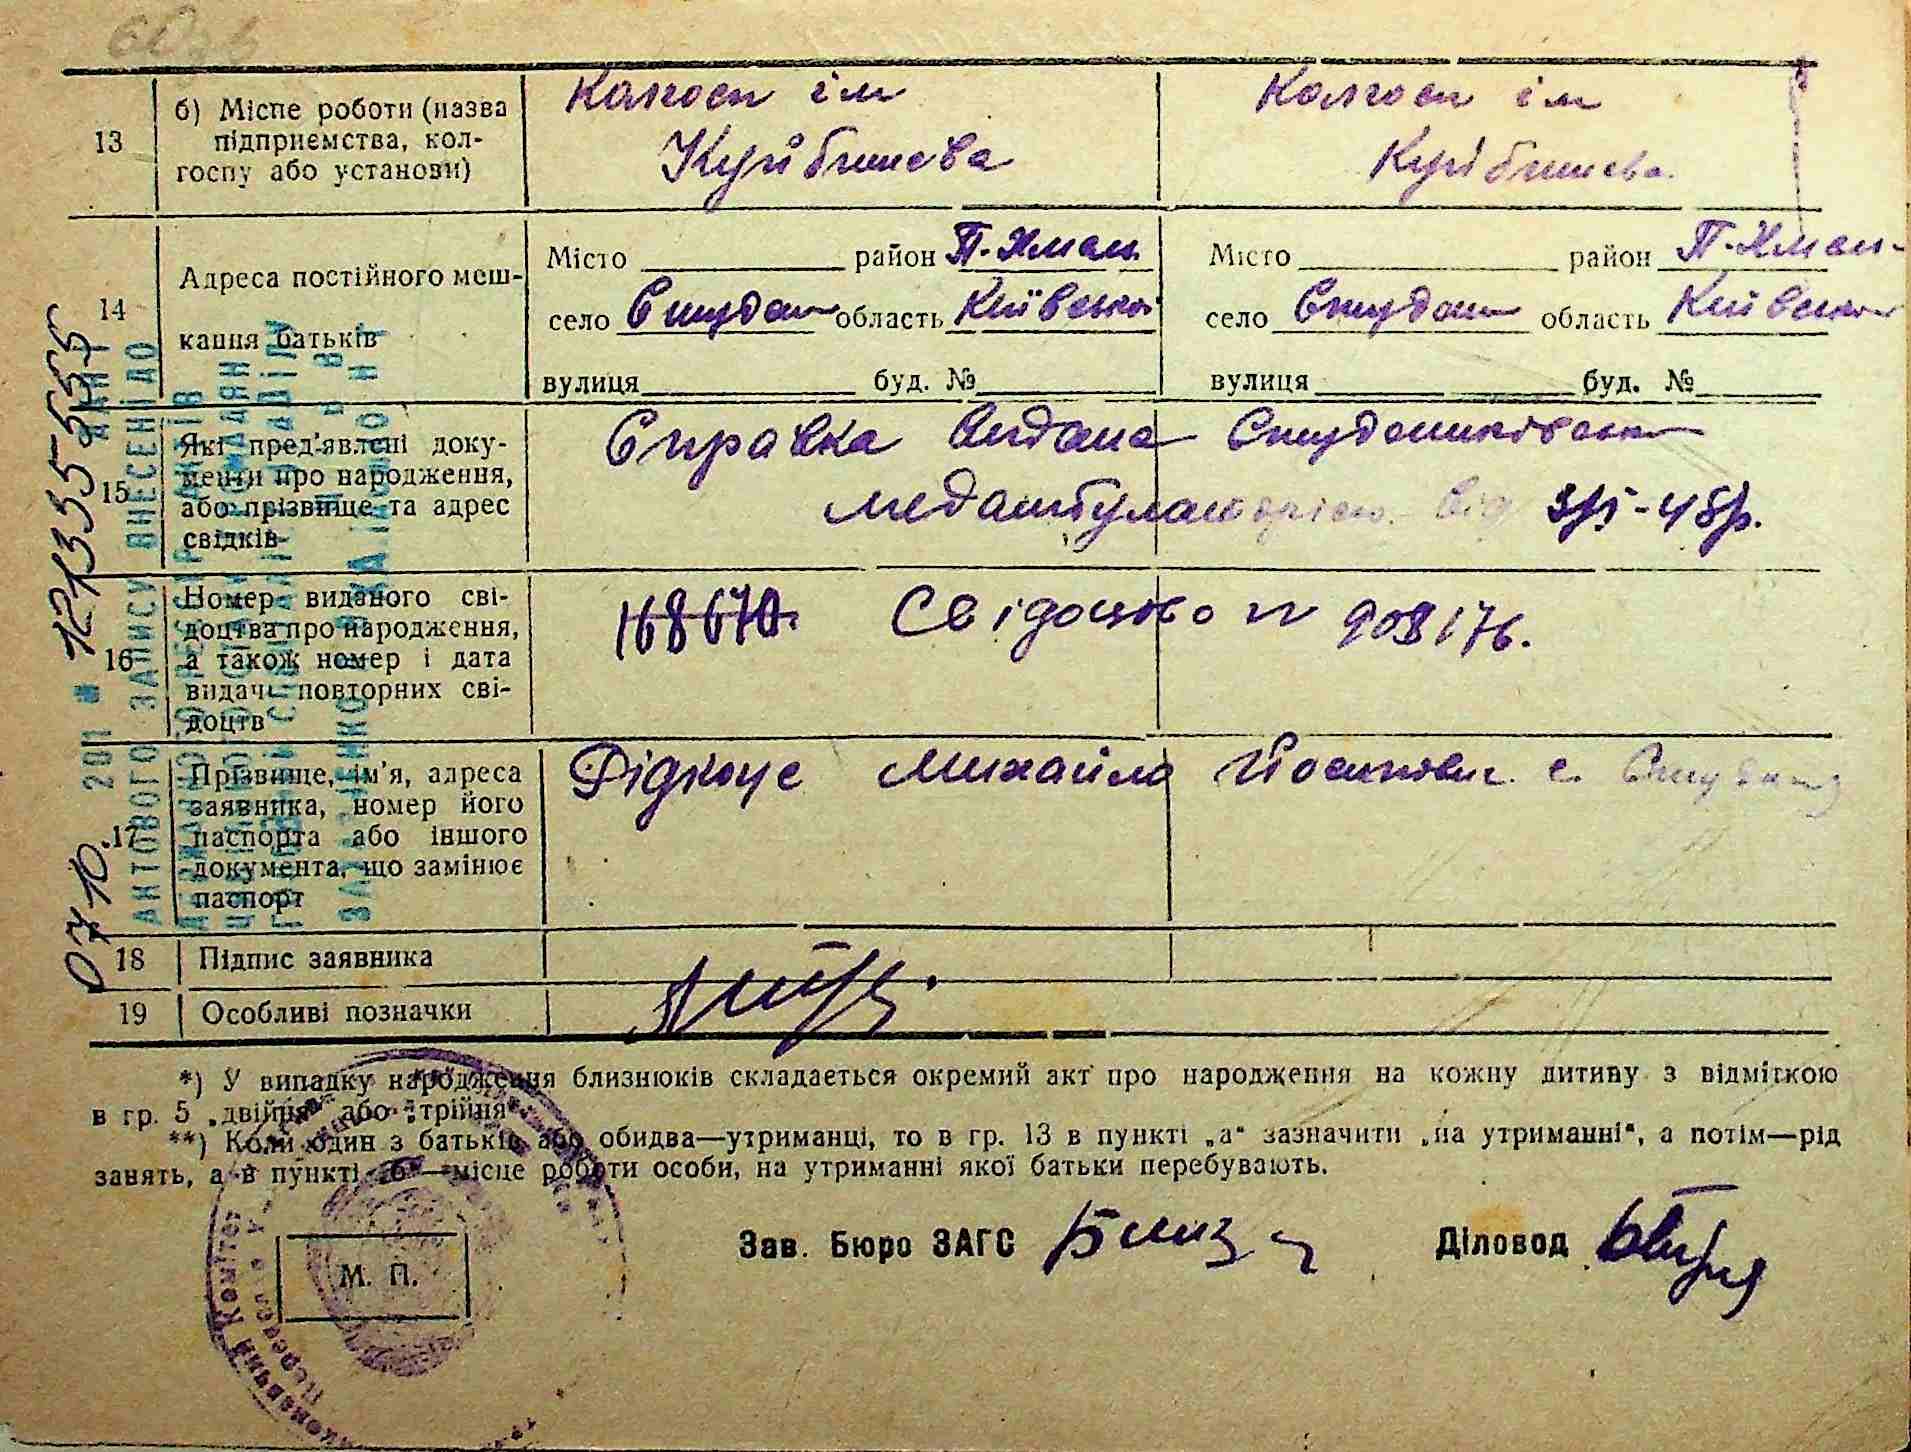 13
б) Місце роботи (назва
підприємства, кол-
госпу або установи)
Колгосп ім
Куйбишева
Колгосп ім
Куйбишева
14
Адреса постійного меш-
кання батьків
Місто район П-Хмел.
село Студен область Київська
вулиця буд. №
Місто район П-Хмел-
село Студен область Київська
вулиця буд. №
15
Які пред'явлені доку-
менти про народження,
або прізвище та адрес
свідків
Справка видана Студениківськ
медамбулаторією від 3/І-48р.
16
Номер виданого сві-
доцтва про народження,
а також номер і дата
видачі повторних сві-
доцтв
168670. Свідоцтво N 908176.
17
Прізвище, ім'я, адреса
заявника, номер його
паспорта або іншого
документа, що замінює
паспорт
Дідкоує Михайло Йосипович с. Студен
18
Підпис заявника
19
Особливі позначки
*) У випадку народження близнюків складається окремий акт про народження на кожну дитину з відміткою
в гр. 5 „двійня" або „трійня"
**) Коли один з батьків або обидва—утриманці, то в гр. 13 в пункті „а" зазначити „на утриманні", а потім—рід
занять, а в пункті „б"—місце роботи особи, на утриманні якої батьки перебувають.
М. П.
Зав. Бюро ЗАГС
Діловод
07 10. 2011 12133 5555
АКТОВОГО ЗАПИСУ ВНЕСЕНІ ДО